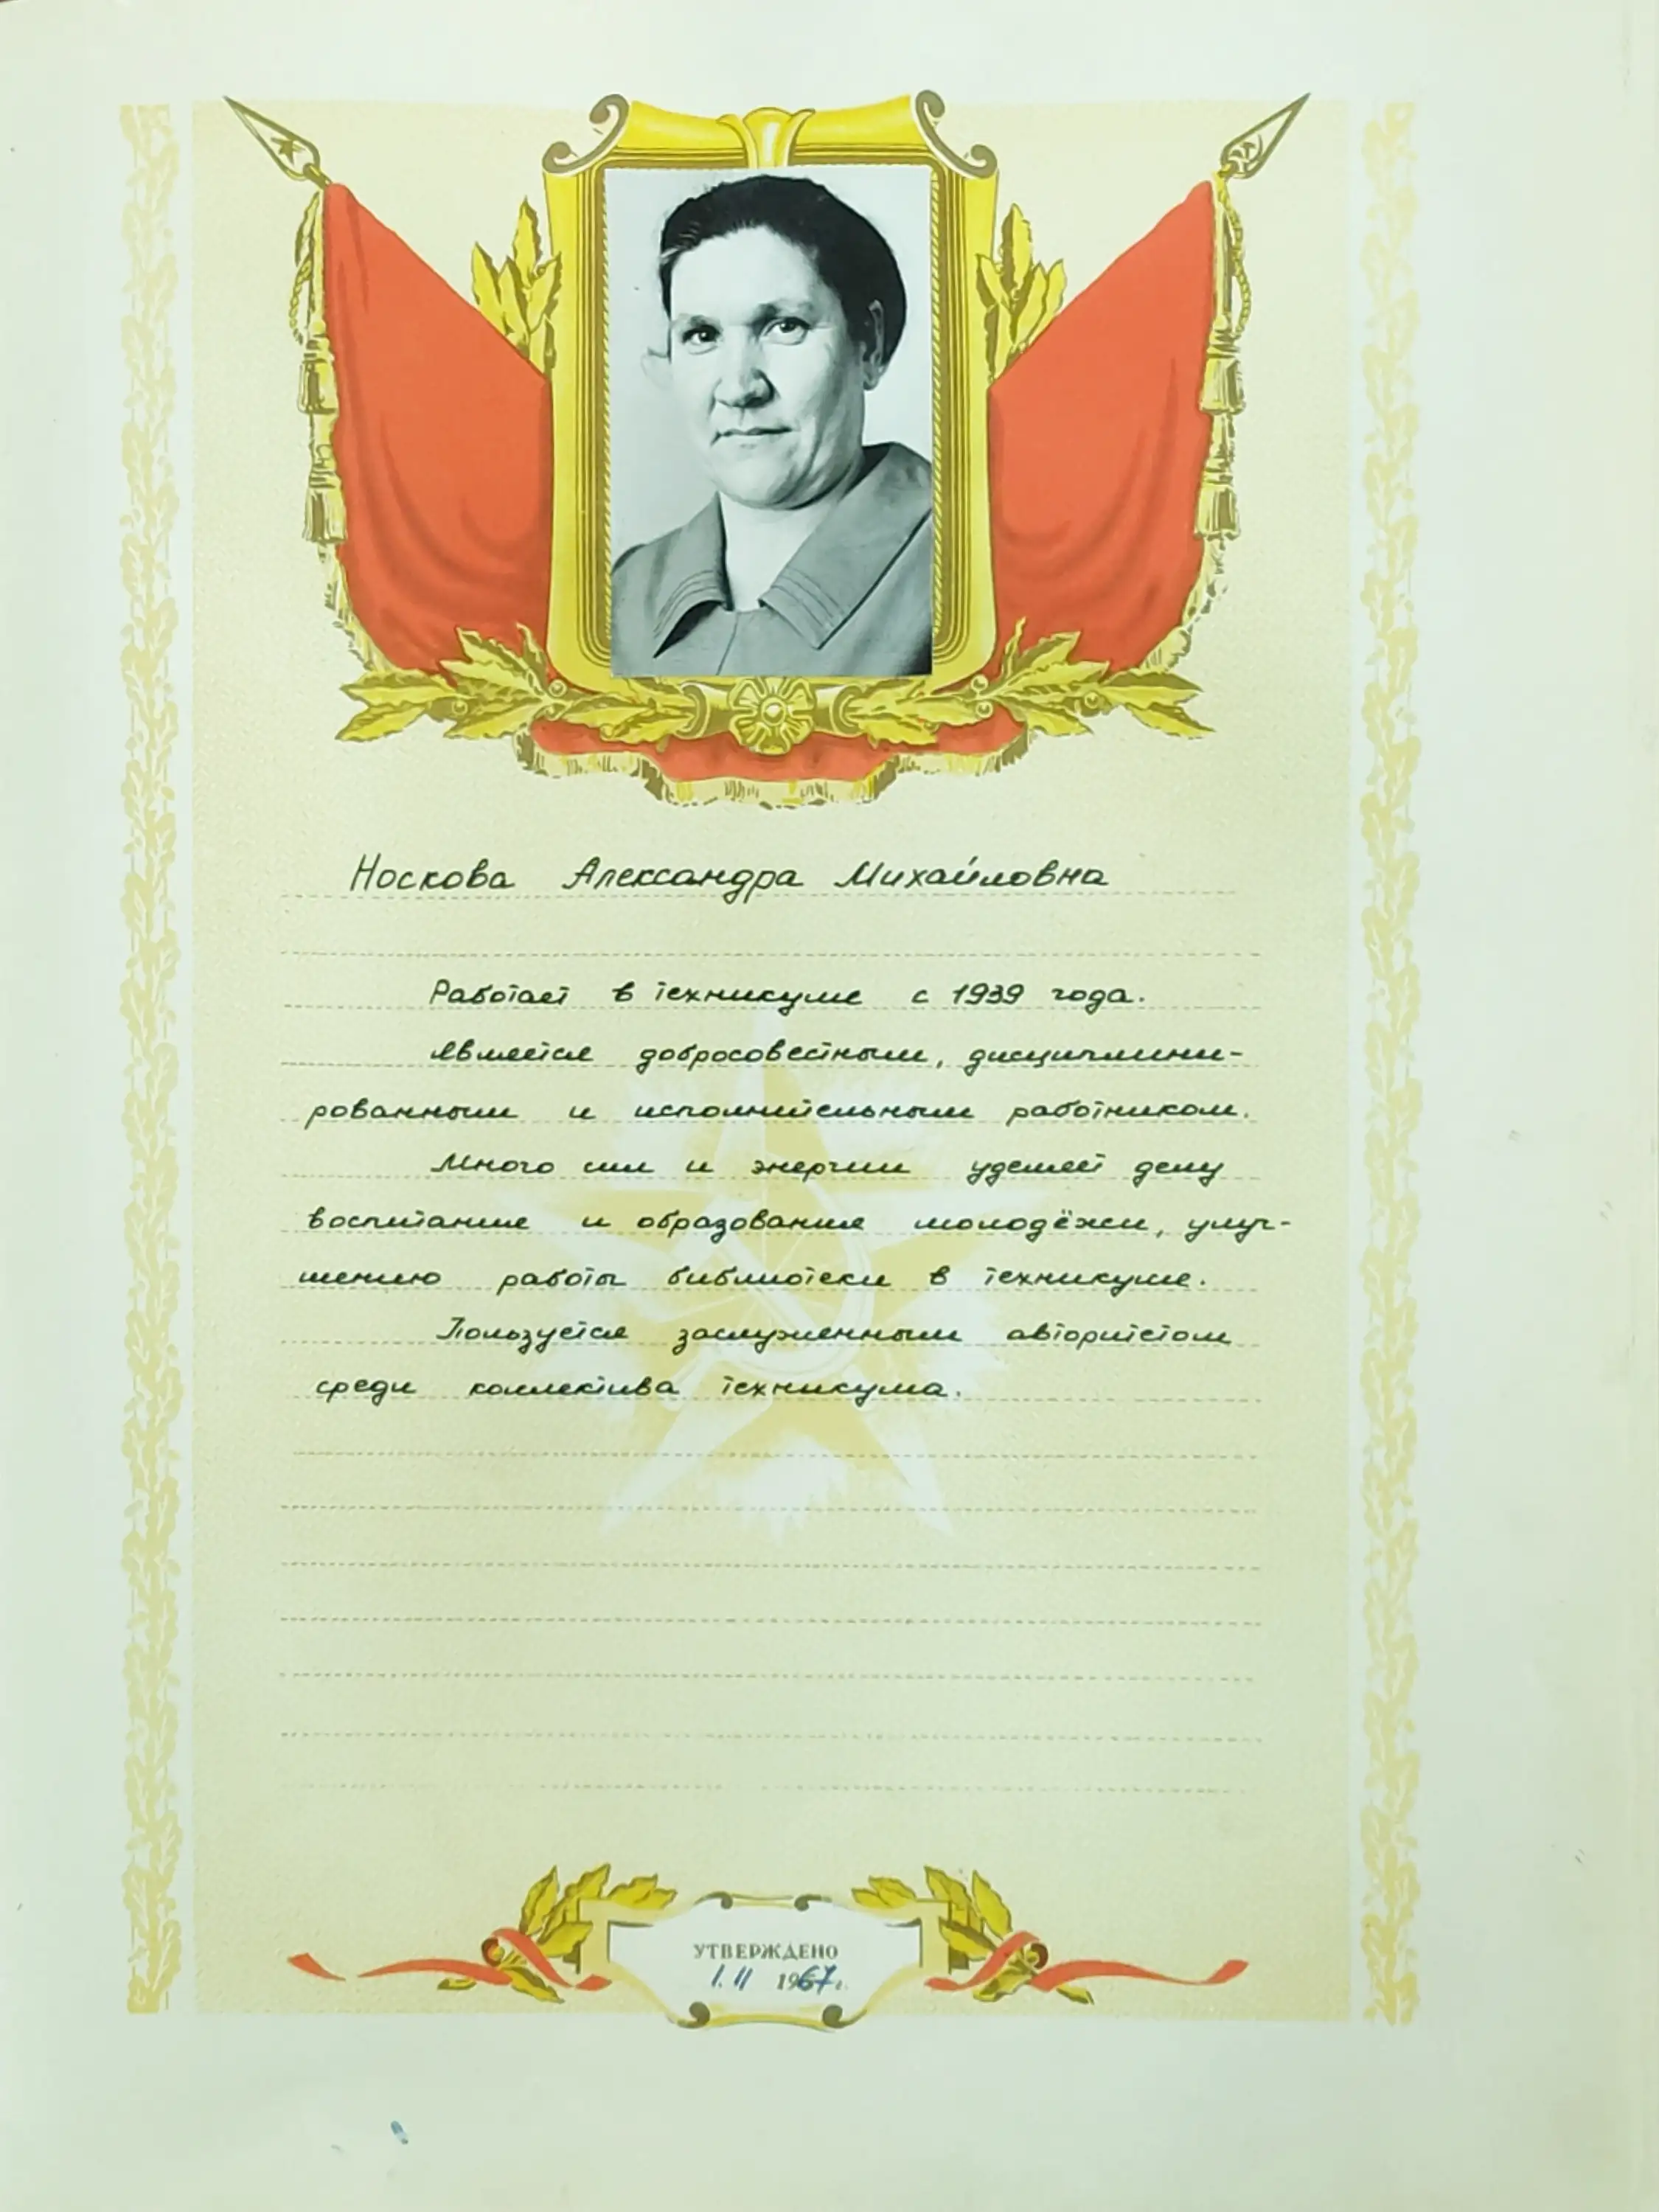 Носкова Александра Михайловна
Работает в техникуме с 1939 года.
Является добросовестным, дисциплини-
рованным и исполнительным работником.
Много сил и энергии уделяет делу
воспитание и образование молодёжи, улуч-
шению работы библиотеки в техникуме.
Пользуется заслуженным авторитетом
среди коллектива техникума.
УТВЕРЖДЕНО
1. II 1967г.